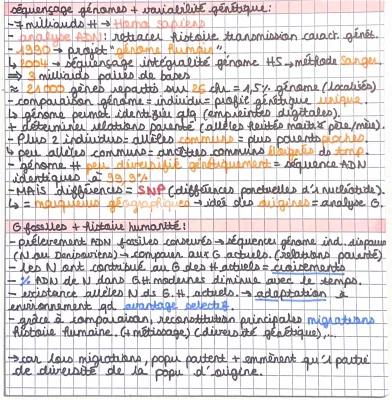 séquençage génomes + variabilité génétique :
- 7 milliards H → Homo sapiens
- analyse ADN : retracer histoire transmission caract. génét.
- 1990 → projet "génome humain".
↳ 2004 → séquençage intégralité génome HS → méthode Sanger.
⇒ 3 milliards paires de bases
≈ 21000 gènes répartis sur 25 chr. = 1,5% génome (localisés)
- comparaison génome = individu = profil génétique unique
↳ génome permet identifier qlq (empreintes digitales).
+ déterminer relations parenté (allèles hérités maitr. père/mère).
- Plus 2 individus = allèles communs = plus parents proches.
↳ peu allèles communs = ancêtres communs éloignés ds tmp.
- génome H peu diversifié génétiquement = séquence ADN
identiques à 99,9%
- MAIS différences = SNP (différences ponctuelles d'1 nucléotide).
↳ = marqueurs géographiques → idée des origines = analyse G.
G fossiles + histoire humanité :
- prélèvement ADN fossiles conservés → séquencer génome ind. disparus
(N ou Denisoviens) → comparer aux G actuels. (relations parenté)
- les N ont contribué au G des H actuels = croisements
- % ADN de N dans G.H modernes diminue avec le temps.
- existance allèles N ds G.H. actuels → adaptation à
environnement qd avantage sélectif.
- grâce à comparaison, reconstitution principales migrations
histoire humaine. (+ métissage) (diversité génétique),...
→ car lors migrations, popu partent + emmènent qu'1 partie
de diversité de la popu d'origine.